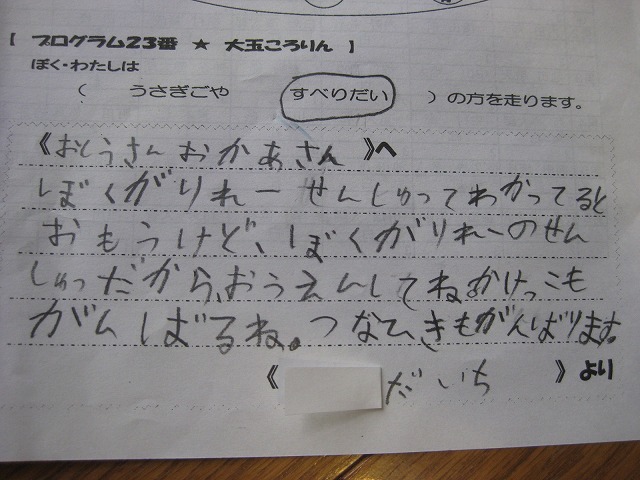 【 プログラム23番 ★ 大玉ころりん 】
ぼく・わたしは
( うさぎごや すべりだい )の方を走ります。
《おとうさん おかあさん》へ
ぼくがりれーせんしゅってわかってると
おもうけど、ぼくがりれーのせん
しゅだから、おうえんしてね。かけっこも
がんばるね。つなひきもがんばります。
《 だいち 》より